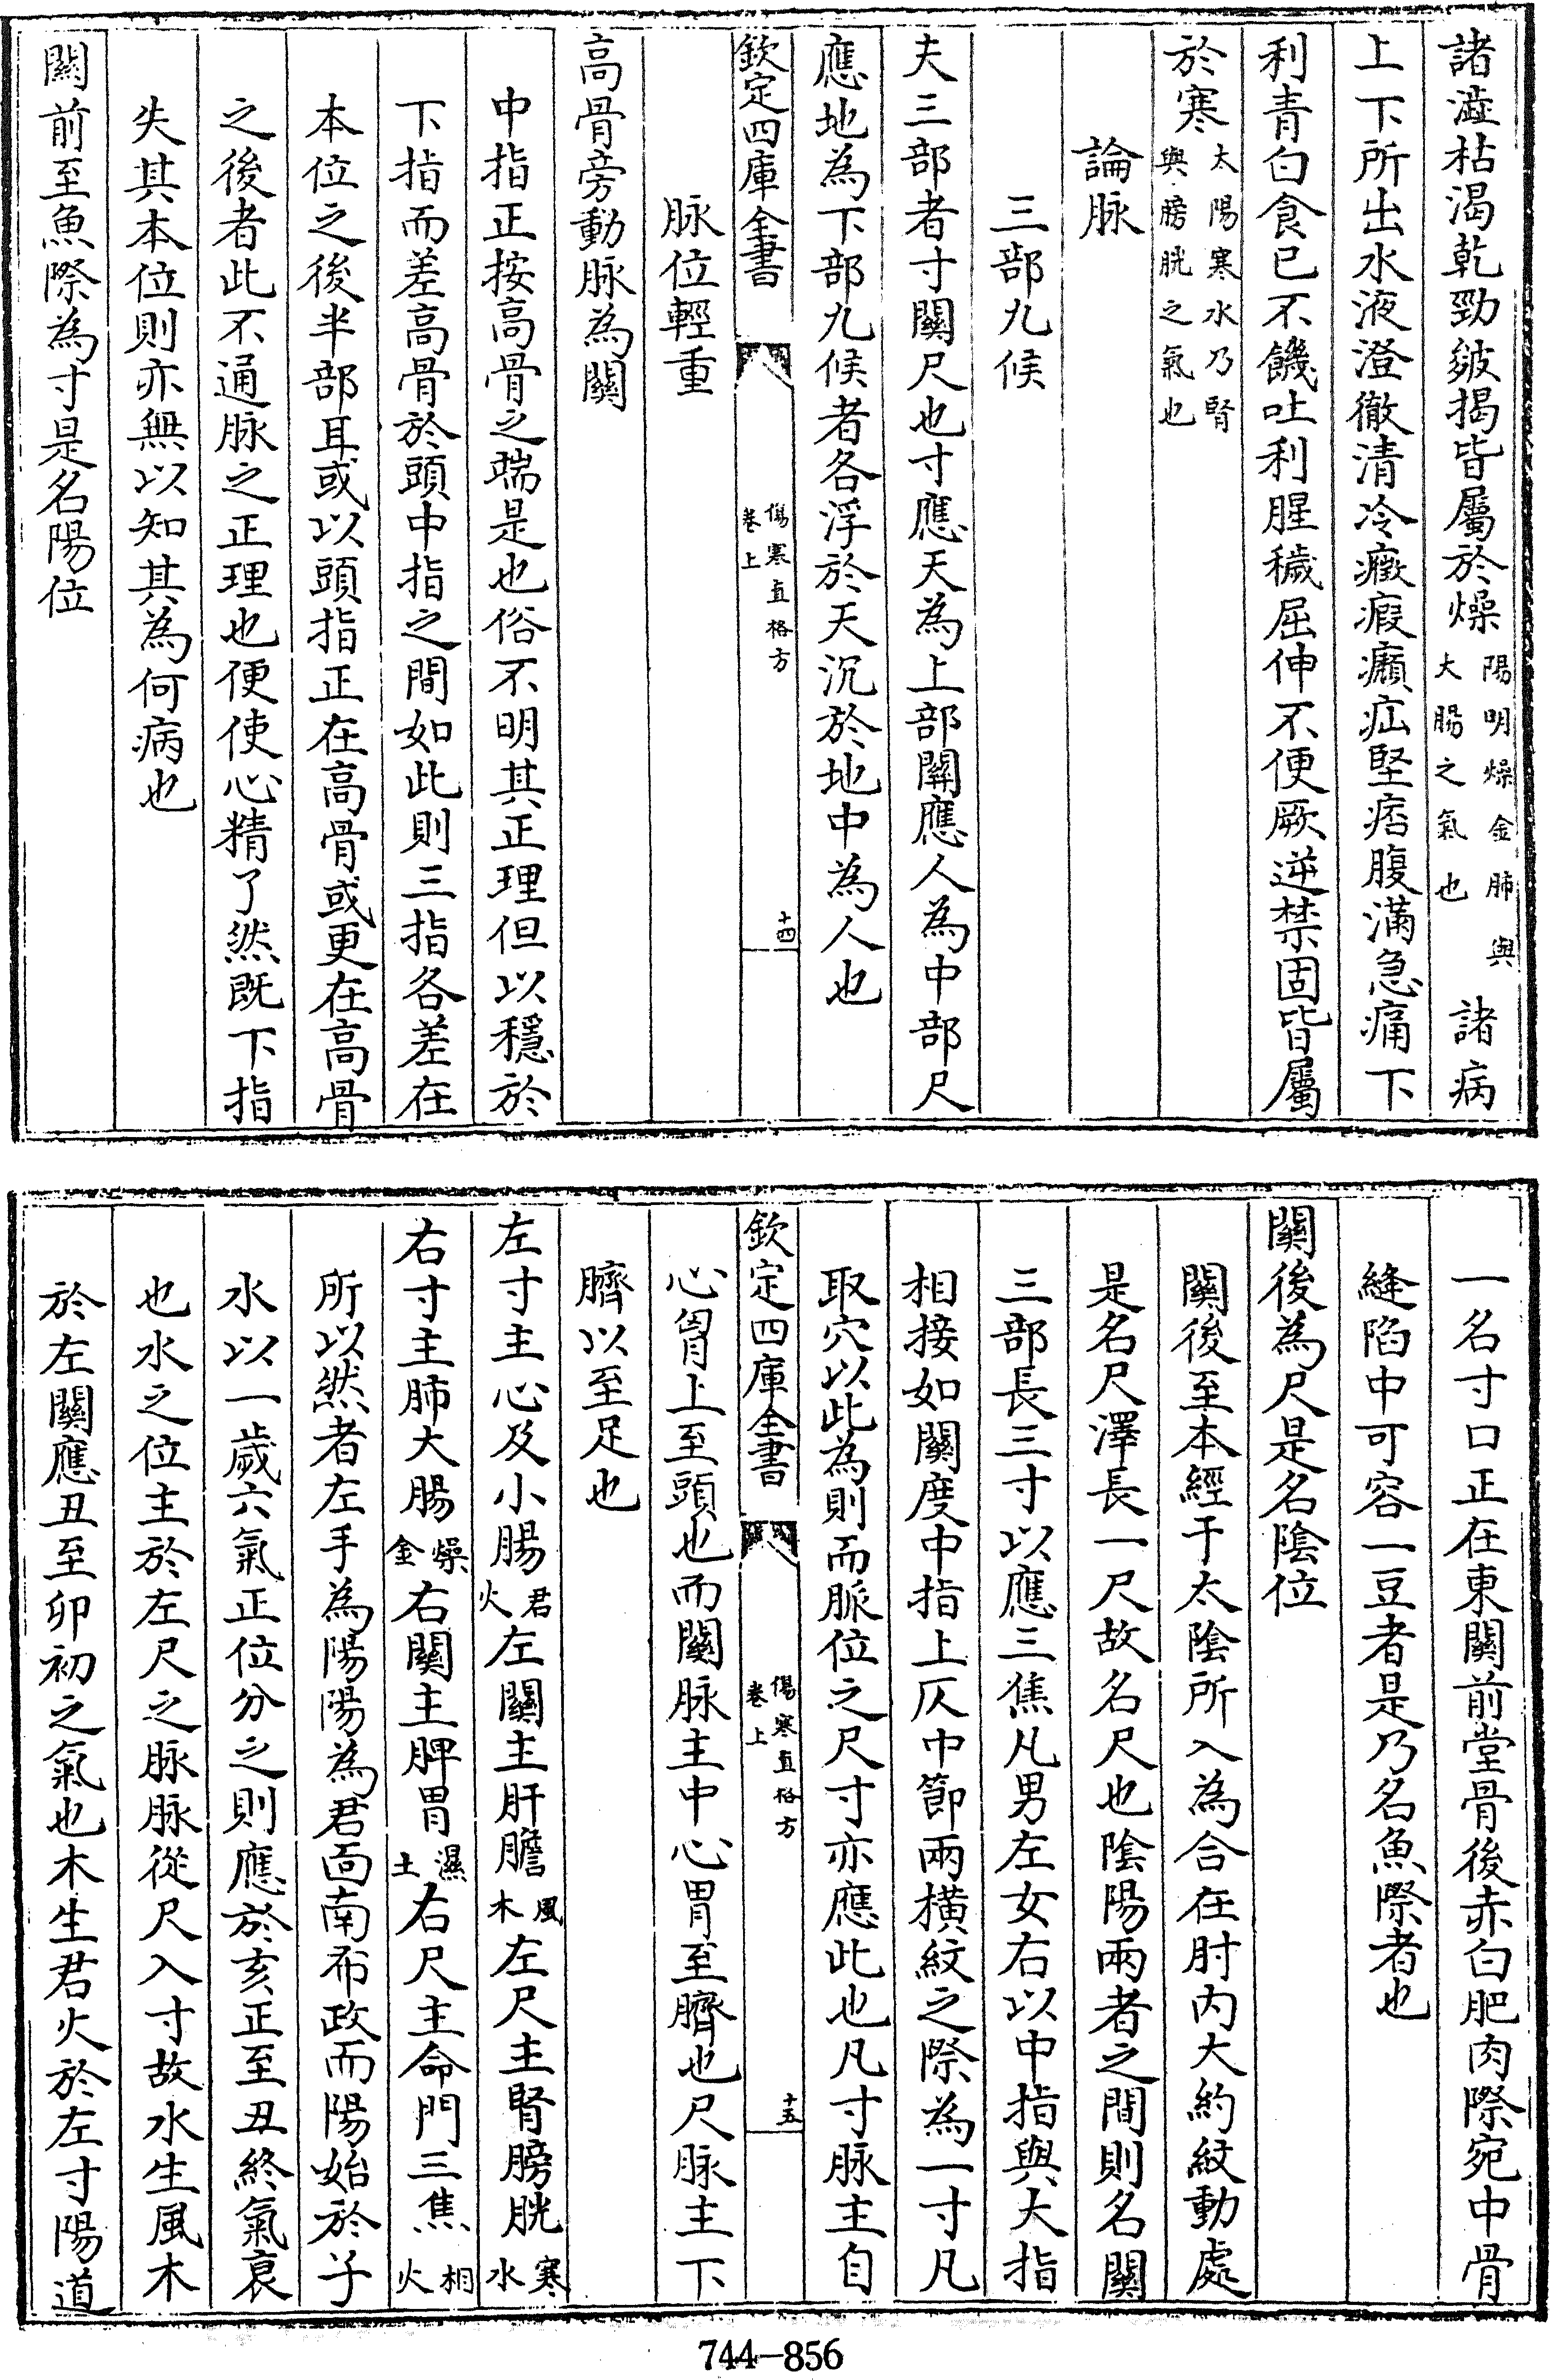 諸澁枯渴乾勁皴揭皆屬於燥陽明燥金肺與大腸之氣也諸病
上下所出水液澄徹清冷癥瘕㿗疝堅痞腹滿急痛下
利青白食已不饑吐利腥穢屈伸不便厥逆禁固皆屬
於寒太陽寒水乃腎與膀胱之氣也
論脉
三部九候
夫三部者寸關尺也寸應天為上部關應人為中部尺
應地為下部九候者各浮於天沉於地中為人也
欽定四庫全書 傷寒直格方卷上 十四
脉位輕重
高骨旁動脉為關
中指正按高骨之端是也俗不明其正理但以穩於
下指而差高骨於頭中指之間如此則三指各差在
本位之後半部耳或以頭指正在高骨或更在高骨
之後者此不通脉之正理也便使心精了然既下指
失其本位則亦無以知其為何病也
關前至魚際為寸是名陽位
一名寸口正在東關前堂骨後赤白肥肉際宛中骨
縫陷中可容一豆者是乃名魚際者也
關後為尺是名陰位
關後至本經干太陰所入為合在肘内大約紋動處
是名尺澤長一尺故名尺也陰陽兩者之間則名關
三部長三寸以應三焦凡男左女右以中指與大指
相接如關度中指上仄中節兩横紋之際為一寸凡
取穴以此為則而脈位之尺寸亦應此也凡寸脉主自
欽定四庫全書 傷寒直格方卷上 十五
心胷上至頭也而關脉主中心胃至臍也尺脉主下
臍以至足也
左寸主心及小腸君火左關主肝膽風木左尺主腎膀胱寒水
右寸主肺大腸燥金右關主脾胃濕土右尺主命門三焦相火
所以然者左手為陽陽為君面南布政而陽始於子
水以一歲六氣正位分之則應於亥正至丑終氣裒
也水之位主於左尺之脉脉從尺入寸故水生風木
於左關應丑至卯初之氣也木生君火於左寸陽道
744-856